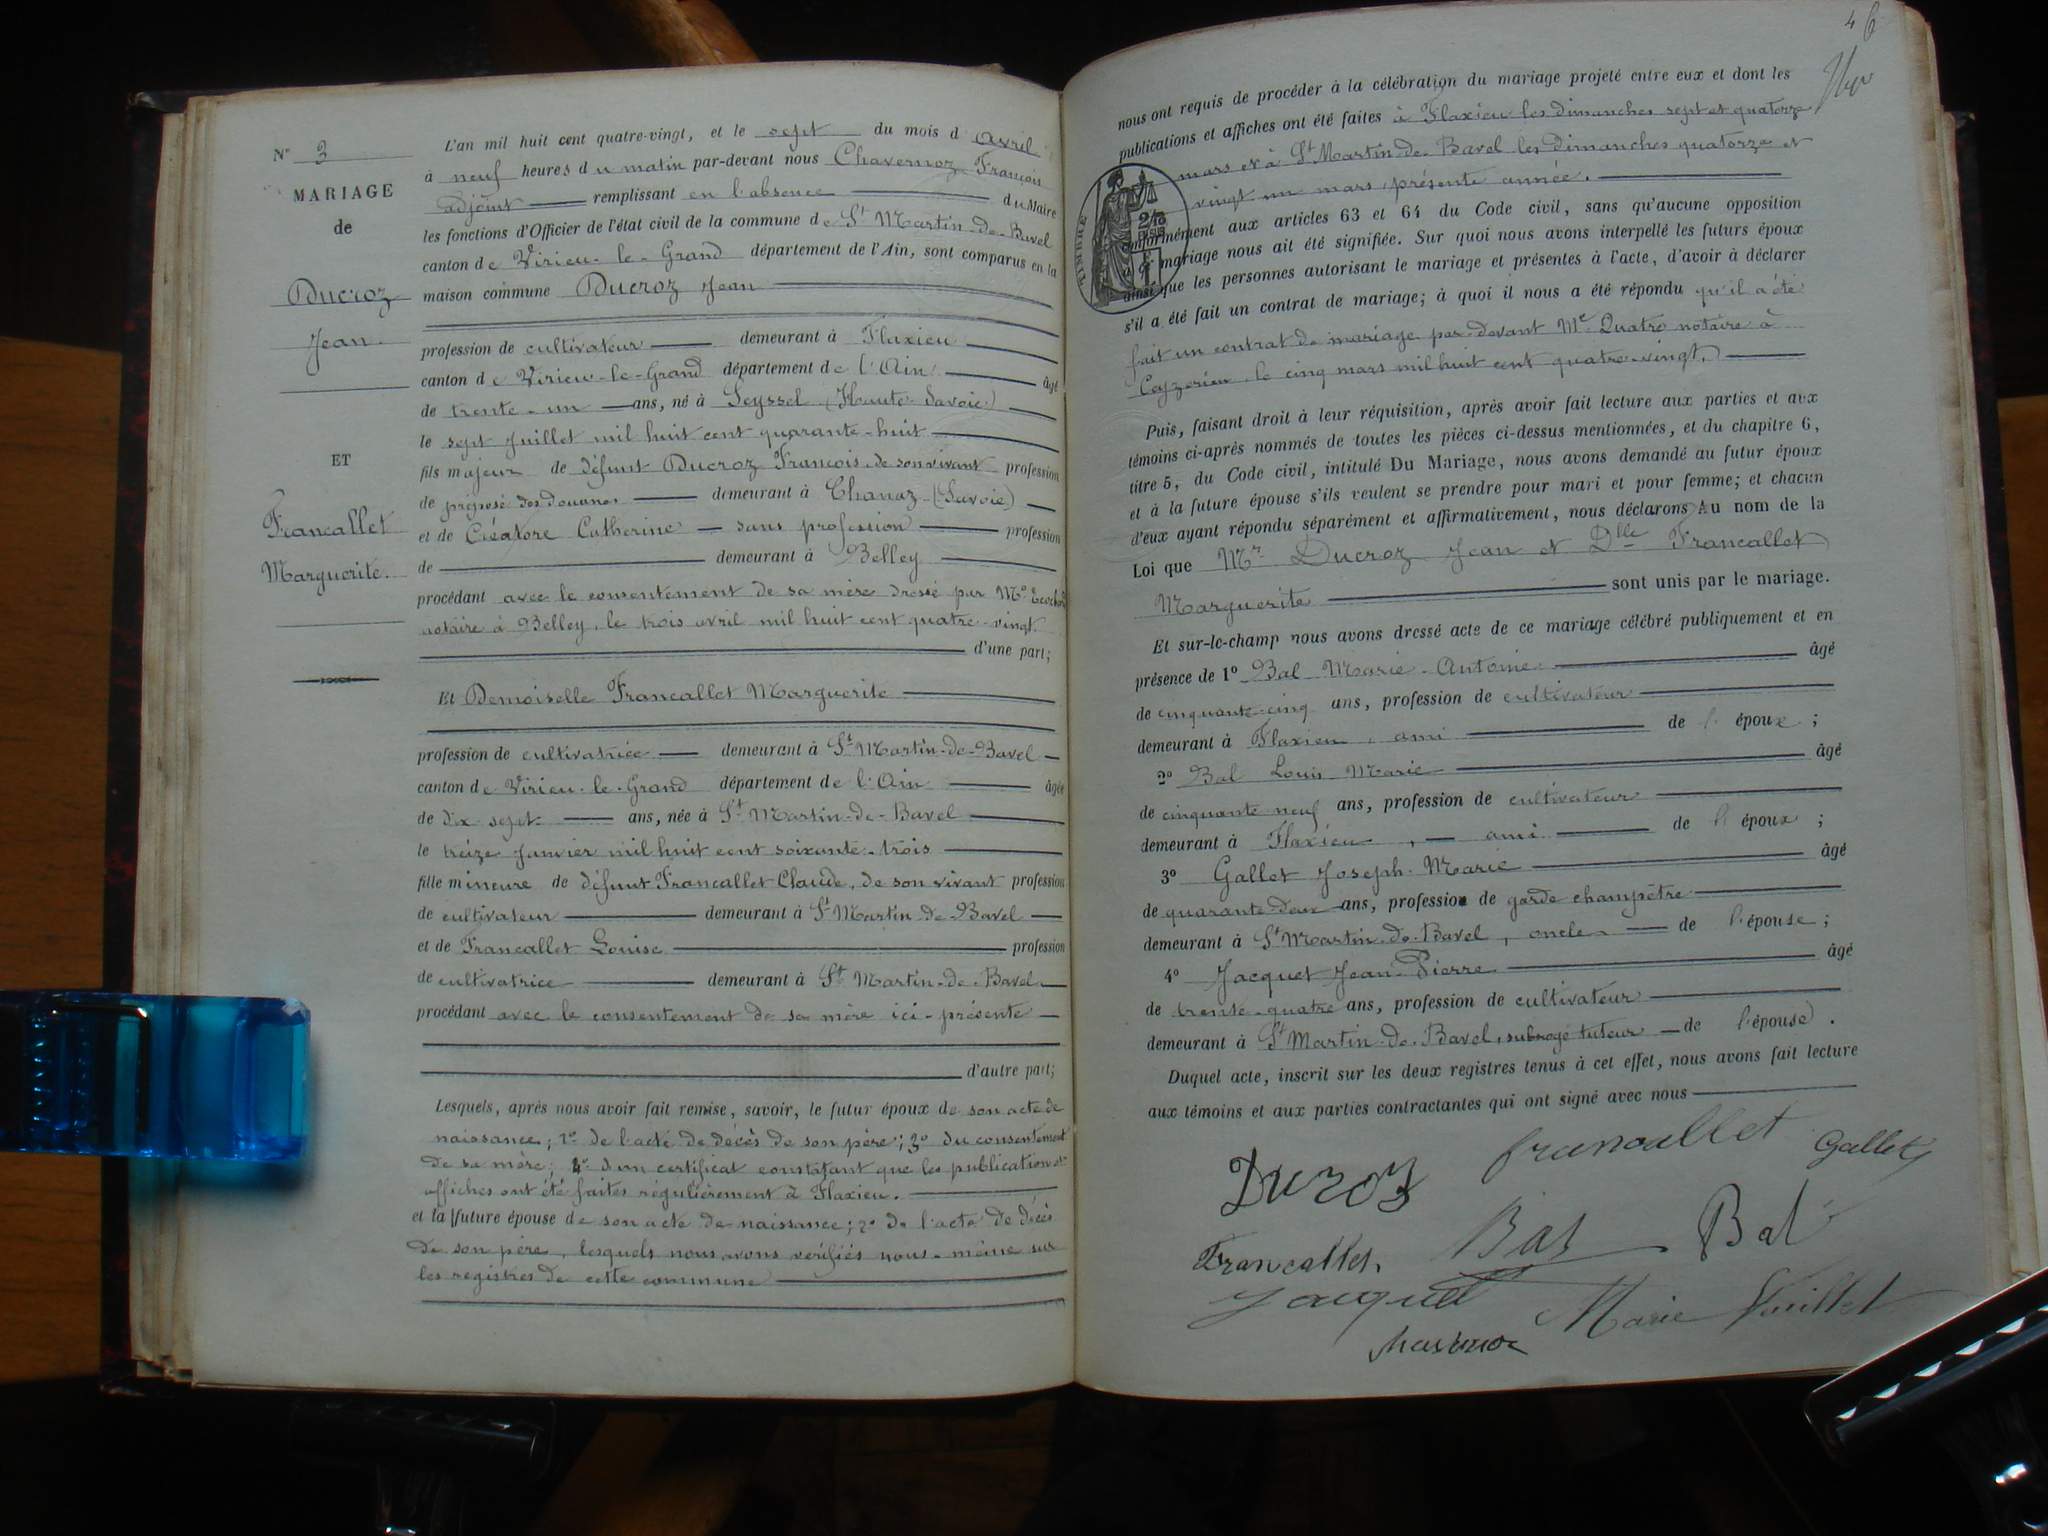 N° 3
MARIAGE
de
Ducroz
Jean
ET
Francallet
Marguerite.
L'an mil huit cent quatre-vingt, et le sept du mois d'avril
à neuf heures du matin par-devant nous Chavernoz François
adjoint remplissant en l'absence du Maire
les fonctions d'Officier de l'état civil de la commune de St Martin-de-Bavel
canton de Virieu-le-Grand département de l'Ain, sont comparus en la
maison commune Ducroz Jean
profession de cultivateur demeurant à Flaxieu
canton de Virieu-le-Grand département de l'Ain âgé
de trente-un ans, né à Seyssel (Haute-Savoie)
le sept Juillet mil huit cent quarante-huit
fils majeur de défunt Ducroz François, de son vivant profession
de préposé des douanes demeurant à Chanaz (Savoie)
et de Créatore Catherine sans profession profession
de demeurant à Belley
procédant avec le consentement de sa mère dressé par Me
notaire à Belley, le trois avril mil huit cent quatre-vingt.
d'une part;
Et Demoiselle Francallet Marguerite
profession de cultivatrice demeurant à St Martin-de-Bavel
canton de Virieu-le-Grand département de l'Ain âgée
de dix sept ans, née à St Martin-de-Bavel
le treize Janvier mil huit cent soixante-trois
fille mineure de défunt Francallet Claude, de son vivant profession
de cultivateur demeurant à St Martin-de-Bavel
et de Francallet Louise profession
de cultivatrice demeurant à St Martin-de-Bavel
procédant avec le consentement de sa mère ici-présente
d'autre part;
Lesquels, après nous avoir fait remise, savoir, le futur époux de son acte de
naissance; 2° de l'acte de décès de son père; 3° du consentement
de sa mère; 4° d'un certificat constatant que les publications et
affiches ont été faites régulièrement à Flaxieu.
et la future épouse de son acte de naissance; 2° de l'acte de décès
de son père, lesquels nous avons vérifiés nous-même sur
les registres de cette commune
46
nous ont requis de procéder à la célébration du mariage projeté entre eux et dont les
publications et affiches ont été faites à Flaxieu les dimanches sept et quatorze
mars et à St Martin-de-Bavel les dimanches quatorze et
vingt un mars, présente année.
TIMBRE
conformément aux articles 63 et 64 du Code civil, sans qu'aucune opposition
à ce mariage nous ait été signifiée. Sur quoi nous avons interpellé les futurs époux
ainsi que les personnes autorisant le mariage et présentes à l'acte, d'avoir à déclarer
s'il a été fait un contrat de mariage; à quoi il nous a été répondu qu'il a été
fait un contrat de mariage par-devant Me Quatre notaire à
Ceyzerieu le cinq mars mil huit cent quatre-vingt.
Puis, faisant droit à leur réquisition, après avoir fait lecture aux parties et aux
témoins ci-après nommés de toutes les pièces ci-dessus mentionnées, et du chapitre 6,
titre 5, du Code civil, intitulé Du Mariage, nous avons demandé au futur époux
et à la future épouse s'ils veulent se prendre pour mari et pour femme; et chacun
d'eux ayant répondu séparément et affirmativement, nous déclarons Au nom de la
Loi que Mr Ducroz Jean et Dlle Francallet
Marguerite sont unis par le mariage.
Et sur-le-champ nous avons dressé acte de ce mariage célébré publiquement et en
présence de 1° Bal Marie-Antoine âgé
de cinquante-cinq ans, profession de cultivateur
demeurant à Flaxieu, ami de l'époux;
2° Bal Louis Marie âgé
de cinquante neuf ans, profession de cultivateur
demeurant à Flaxieu, ami de l'époux;
3° Gallet Joseph-Marie âgé
de quarante-deux ans, profession de garde champêtre
demeurant à St Martin-de-Bavel, oncle de l'épouse;
4° Jacquet Jean-Pierre âgé
de trente-quatre ans, profession de cultivateur
demeurant à St Martin-de-Bavel, subrogé tuteur de l'épouse.
Duquel acte, inscrit sur les deux registres tenus à cet effet, nous avons fait lecture
aux témoins et aux parties contractantes qui ont signé avec nous
Ducroz francallet Gallet
Francallet. Bal Bal
Jacquet Marie Vuillet